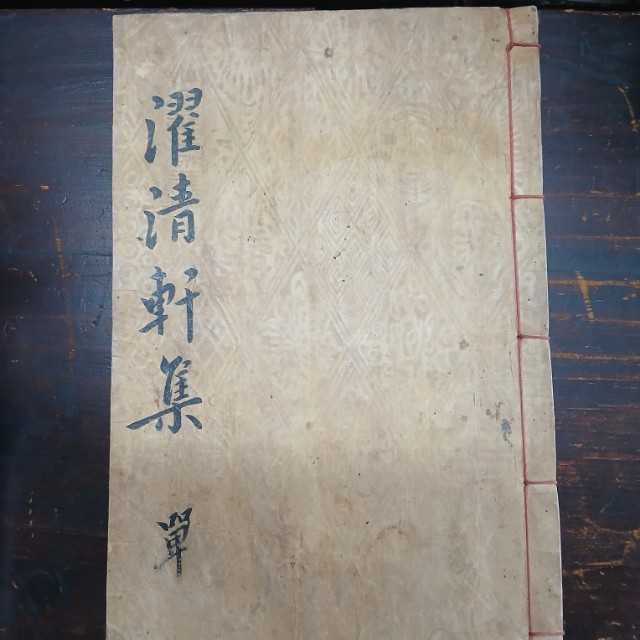 濯清軒集
單